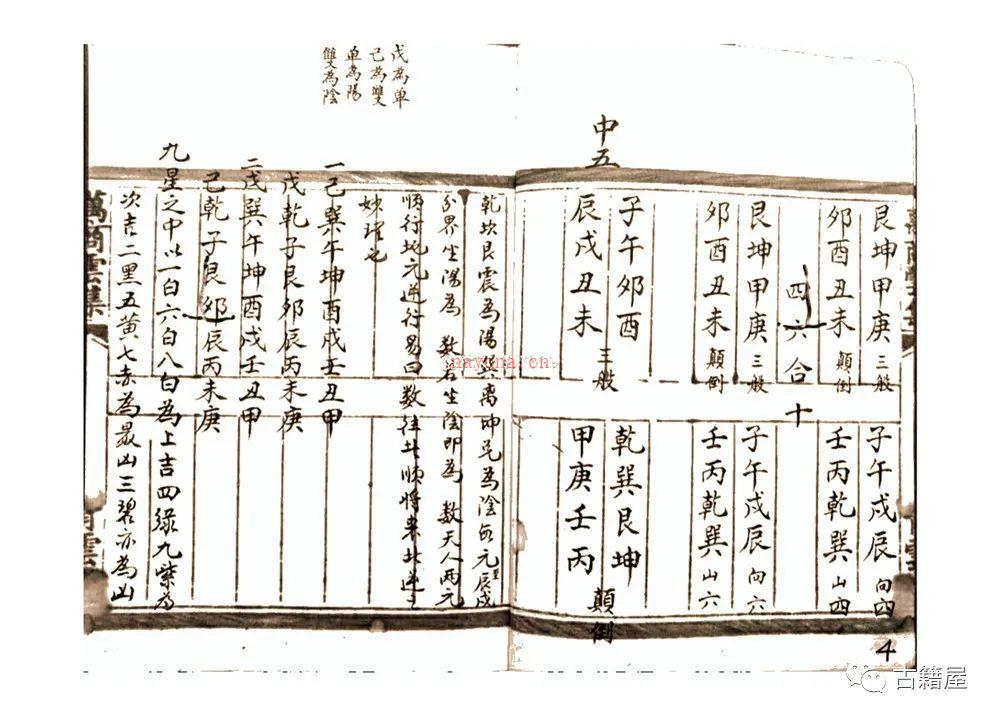 艮坤甲庚 三般 子午戌辰 向四
卯酉丑未 顛倒 壬丙乾巽 山四
四六合十
艮坤甲庚 三般 子午戌辰 向六
卯酉丑未 顛倒 壬丙乾巽 山六
中五
子午卯酉 乾巽艮坤
辰戌丑未 三般 甲庚壬丙 顛倒
4
戊為单
己為雙
单為陽
雙為陰
乾坎艮震為陽巽離坤兌為陰 元辰戌
分界生陽為 数右生陰即為 数天人两元
順行地元逆行易曰数往 順将来 逆
妙理也
一己巽午坤酉戌壬丑甲
戊乾子艮卯辰丙未庚
二戊巽午坤酉戌壬丑甲
己乾子艮卯辰丙未庚
九星之中以一白六白八白為上吉四绿九紫為
次吉二黑五黄七赤為最凶三碧亦為凶
萬商雲集
商雲
nayona.cn
古籍屋